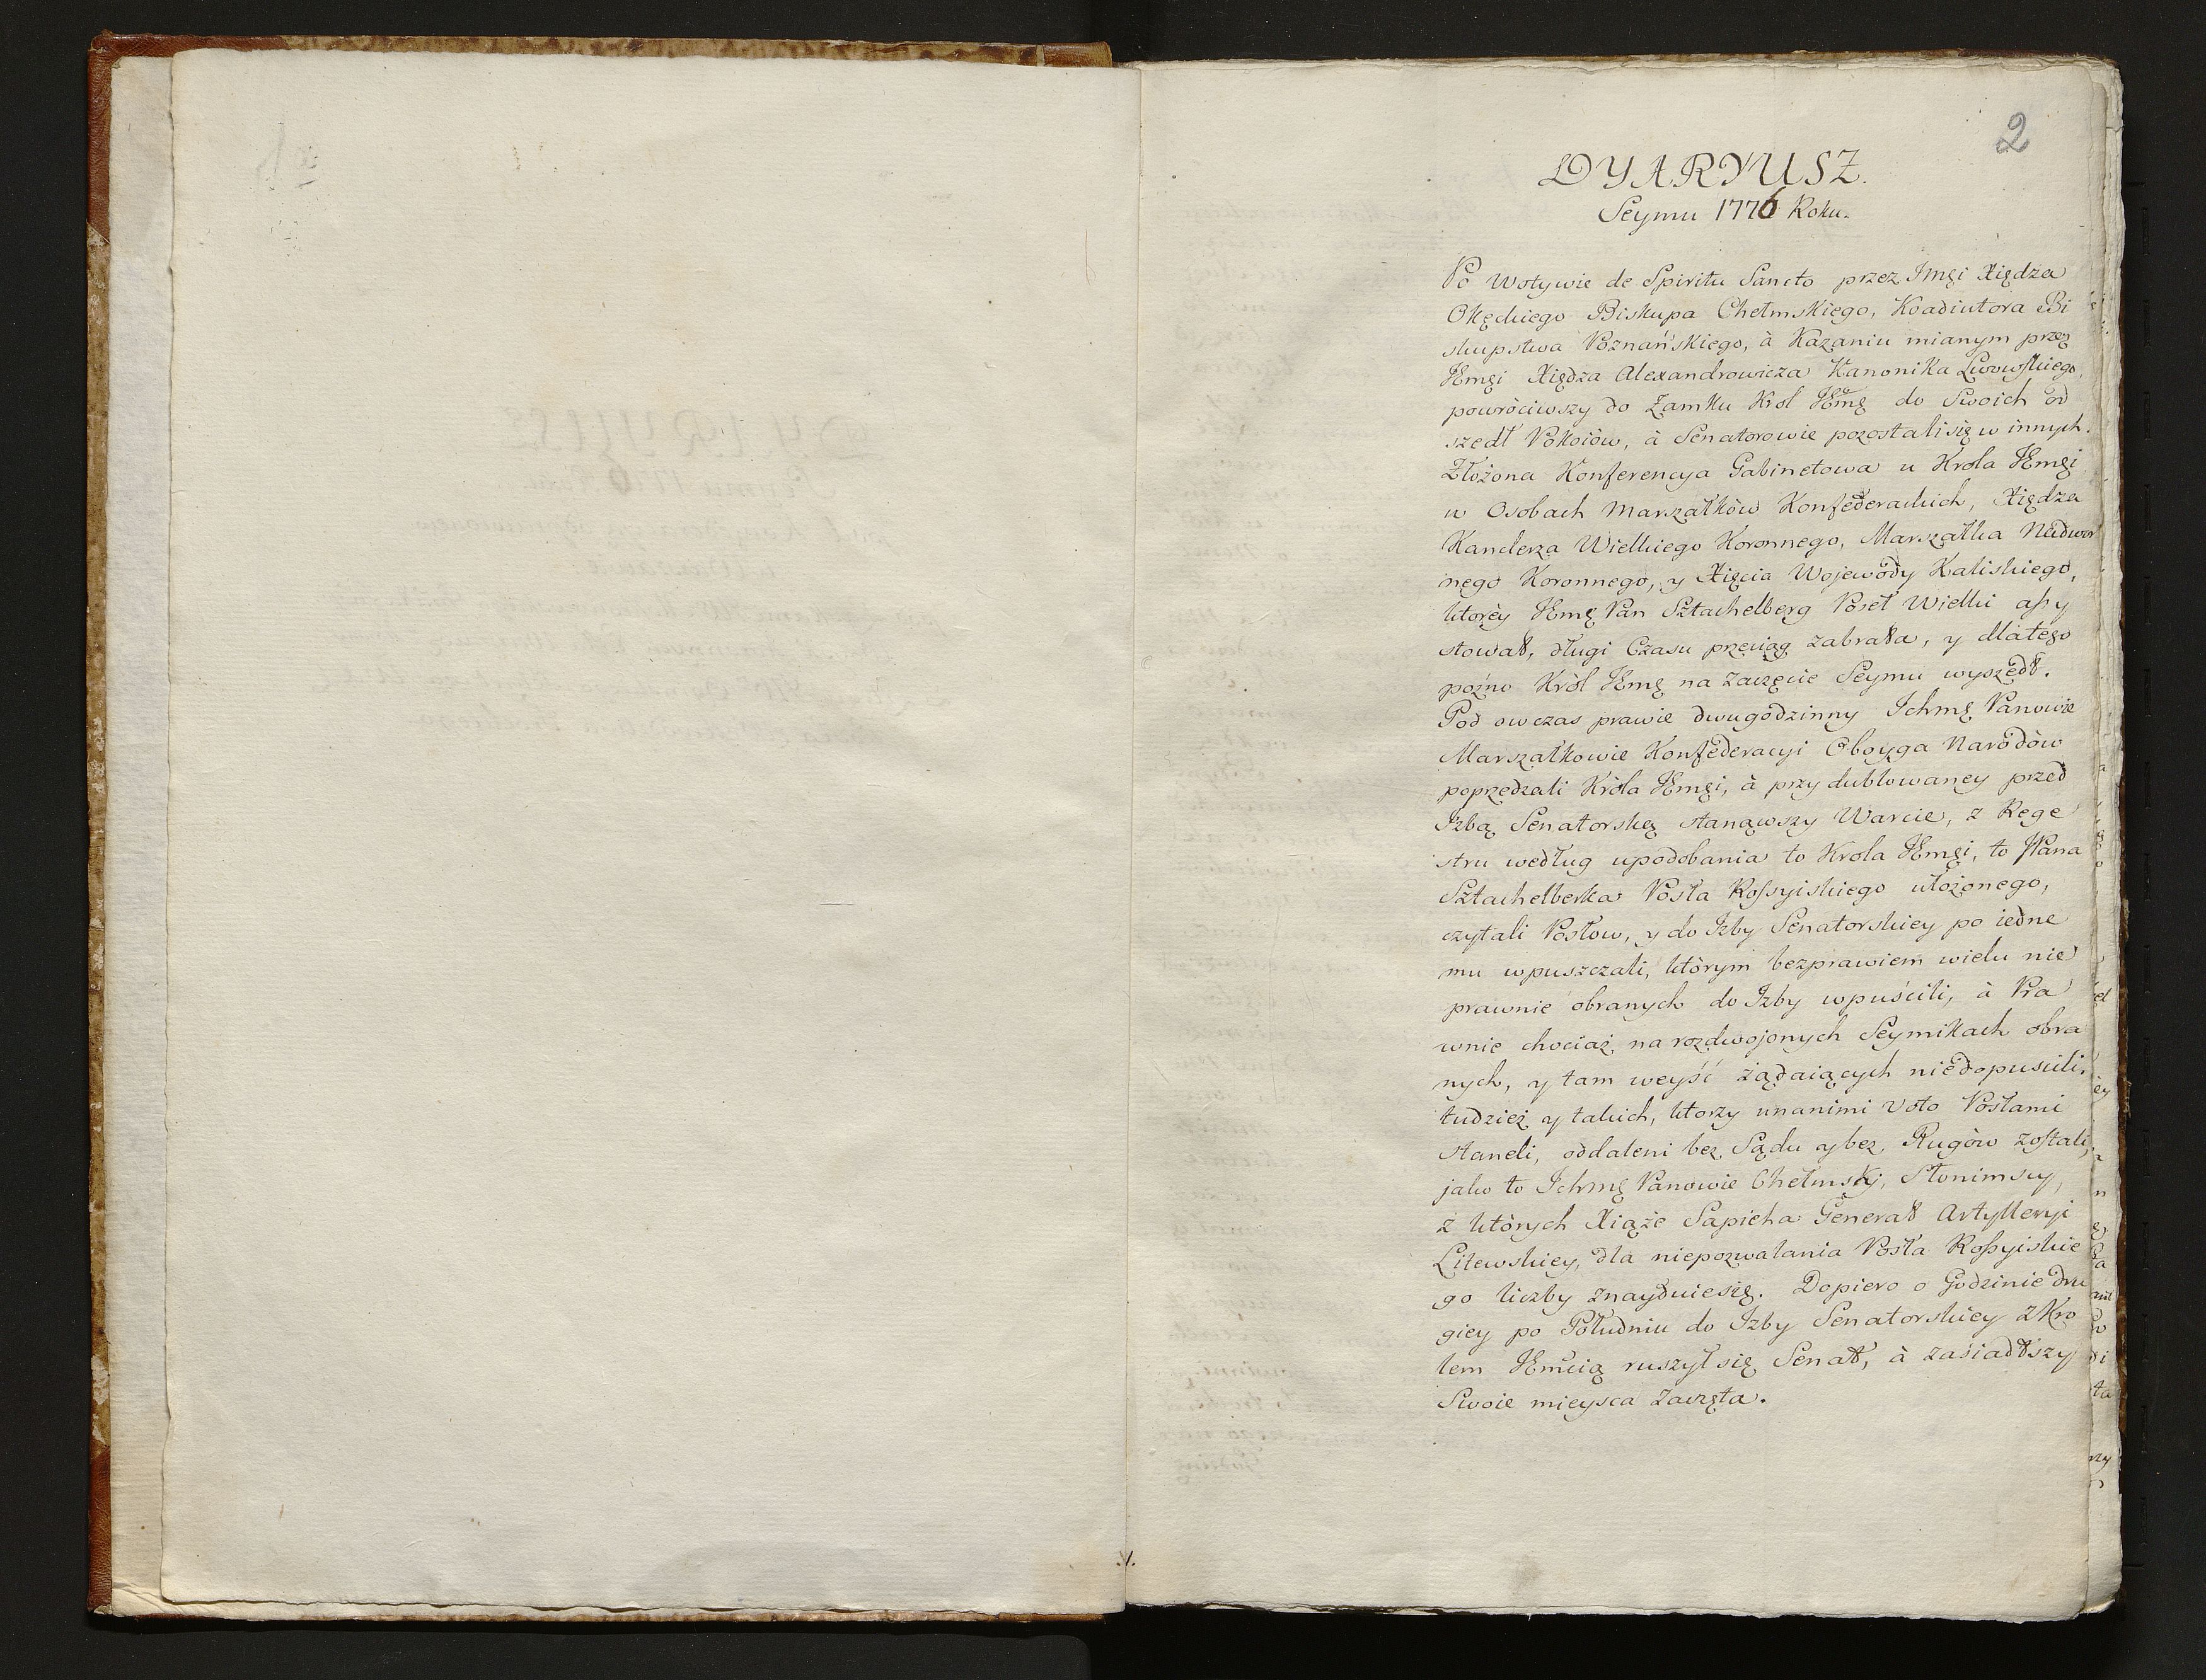 2
DYARYUSZ.
Seymu 1776 Roku.
Po Wotywie de Spiritu Sancto przez Jmęi Xiędza
Okęckiego Biskupa Chełmskięgo, Koadiutora Bi
skupstwa Poznańskiego, à Kazaniu mianym przez
JEmęi Xiędza Alexandrowicza Kanonika Lwowskiego,
powróciwszy do Zamku Krol JEmę do Swoich od
szedł Pokoiów, à Senatorowie pozostali się w innych.
Złożona Konferencya Gabinetowa u Krola JEmęi
w Osobach Marszałków Konfederackich, Xiędza
Kanclerza Wielkiego Koronnego, Marszałka Nadwor
nego Koronnego, y Xięcia Wojewody Kaliskiego,
ktorèy JEmę Pan Sztachelberg Poseł Wielki assy
stował, długi Czasu przeciąg zabrała, y dlatego
poźno Król JEmę na Zaczęcie Seymu wyszedł.
Pod owczas prawie dwugodzinny Ichmę Panowie
Marszałkowie Konfederacyi Oboyga Narodów
poprzedzali Króla JEmęi, à przy dublowaney przed
Izbą Senatorską stanąwszy Warcie, z Rege
stru według upodobania to Krola JEmęi, to JPana
Sztachelberka Posła Rossyiskiego ułożonego,
czytali Posłow, y do Izby Senatorskiey po iedne
mu wpuszczali, którym bezprawiem wielu nie
prawnie obranych do Izby wpuścili, à Pra
wnie chociaż na rozdwojonych Seymikach obra
nych, y tam weyść żądaiących niedopuscili.
tudzież y takich, ktorzy unanimi Voto Posłami
staneli, oddaleni bez Sądu y bez Rugów zostali,
jako to Ichmę Panowie Chełmscy, Słonimscy,
z których Xiąże Sapieha Generał Artylleryi
Litewskiey, dla niepozwalania Posła Rossyiskie
go liczby znayduiesię. Dopiero o Godzinie dru
giey po Południu do Izby Senatorskiey z Kro
lem JEmcią ruszył się Senat, à zasiadłszy
Swoie mieysca Zaczęta.